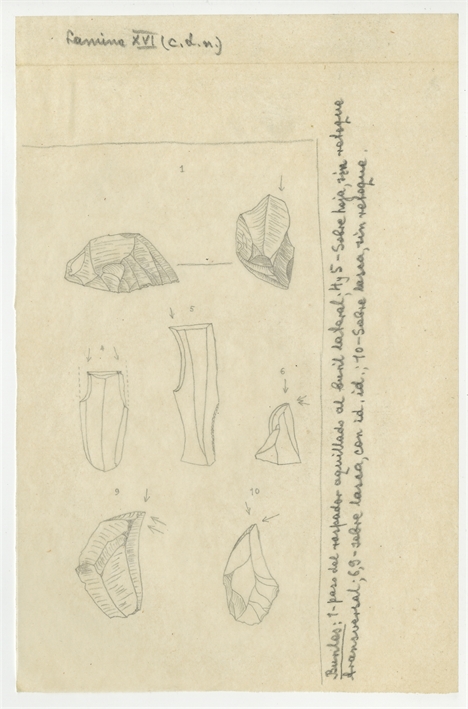 Lamina XVI (c.d.n.)
1
5
4
6
9
10
Buriles: 1- paso del raspador aquillado al buril lateral. 4 y 5 - Sobre hoja, sin retoque
transversal; 6, 9 - sobre lasca, con id. id.; 10 - Sobre lasca, sin retoque.